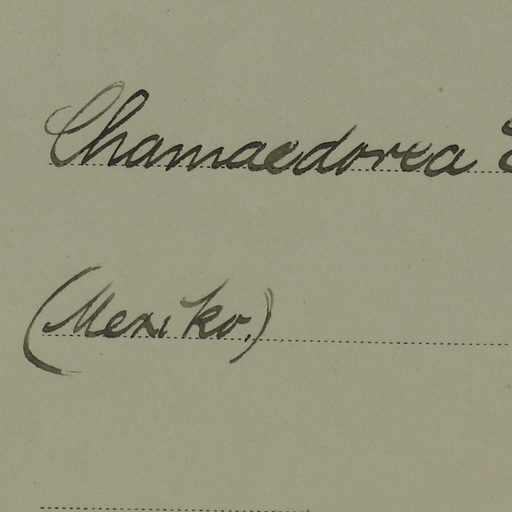 Chamaedorea
(Mexiko.)